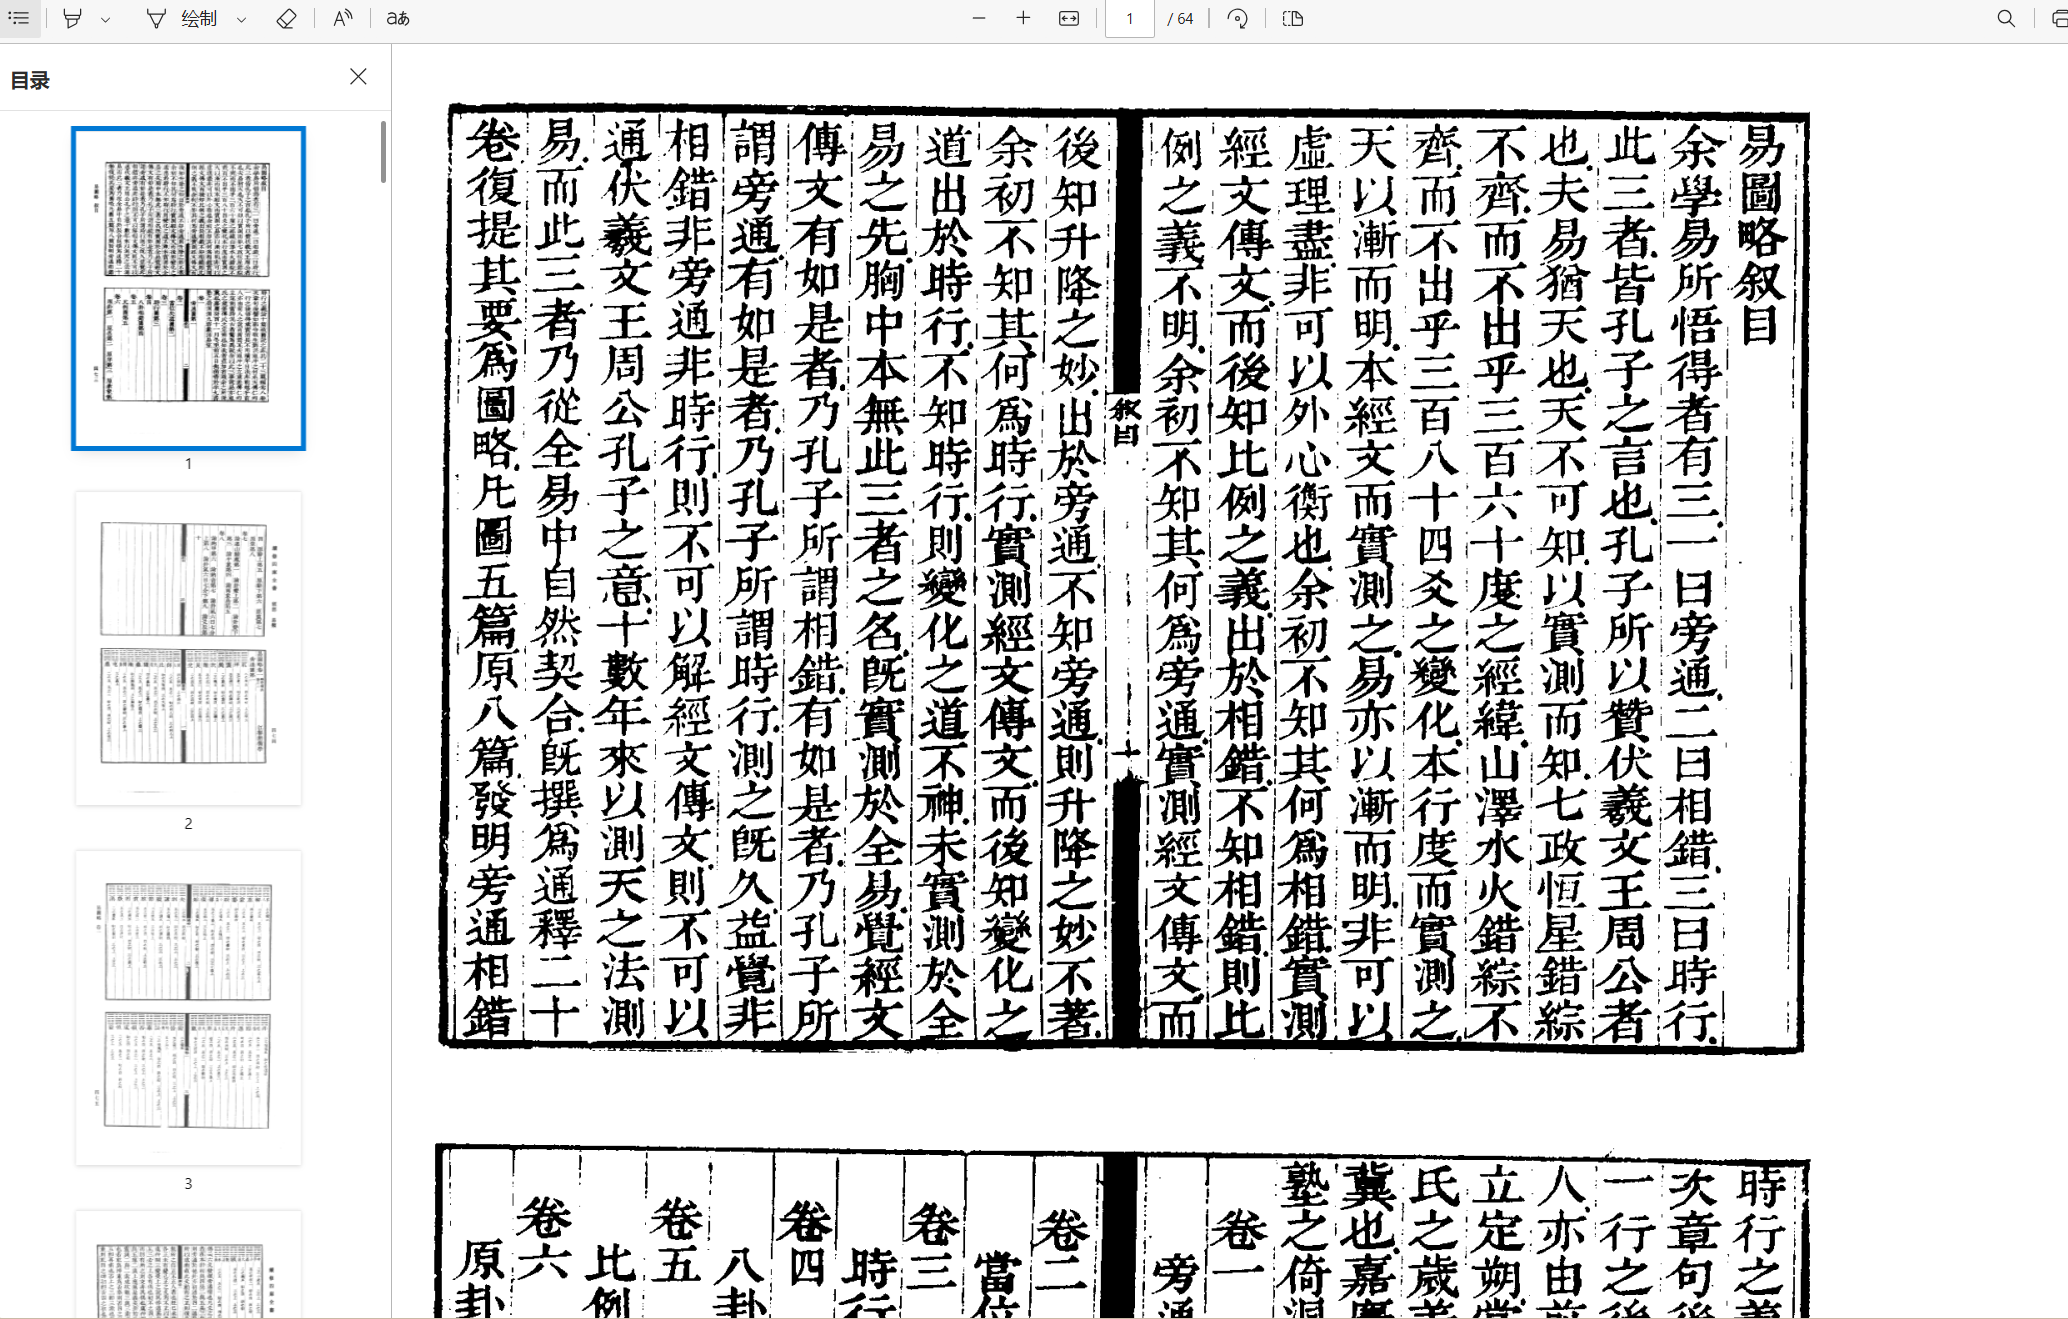 绘制
1
/ 64
aあ
目录
1
2
3
易圖略叙目
余學易所悟得者有三一曰旁通二曰相錯三曰時行
此三者皆孔子之言也孔子所以贊伏羲文王周公者
也夫易猶天也天不可知以實測而知七政恒星錯綜
不齊而不出乎三百六十度之經緯山澤水火錯綜不
齊而不出乎三百八十四爻之變化本行度而實測之
天以漸而明本經文而實測之易亦以漸而明非可以
虛理盡非可以外心衡也余初不知其何爲相錯實測
經文傳文而後知比例之義出於相錯不知相錯則比
例之義不明余初不知其何爲旁通實測經文傳文而
叙目
後知升降之妙出於旁通不知旁通則升降之妙不著
余初不知其何爲時行實測經文傳文而後知變化之
道出於時行不知時行則變化之道不神未實測於全
易之先胸中本無此三者之名既實測於全易覺經文
傳文有如是者乃孔子所謂相錯有如是者乃孔子所
謂旁通有如是者乃孔子所謂時行測之既久益覺非
相錯非旁通非時行則不可以解經文傳文則不可以
通伏羲文王周公孔子之意十數年來以測天之法測
易而此三者乃從全易中自然契合既撰爲通釋二十
卷復提其要爲圖略凡圖五篇原八篇發明旁通相錯
時行之義
次章句後
一行之後
人亦由前
立定朔
氏之歲差
冀也嘉慶
塾之倚洞
卷一
旁通
卷二
當位
卷三
時行
卷四
八卦
卷五
比例
卷六
原卦